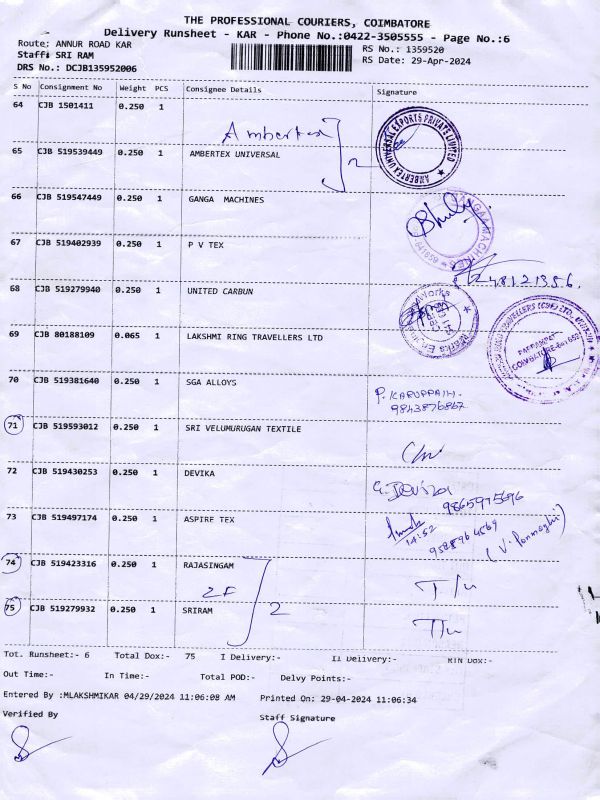 THE PROFESSIONAL COURIERS, COIMBATORE
Delivery Runsheet - KAR - Phone No.:0422-3505555 - Page No.:6
Route: ANNUR ROAD KAR
RS No.: 1359520
Staff: SRI RAM
RS Date: 29-Apr-2024
DRS No.: DCJB135952006
S No Consignment No Weight PCS Consignee Details Signature
64 CJB 1501411 0.250 1
Ambertex
65 CJB 519539449 0.250 1 AMBERTEX UNIVERSAL
2
AMBERTEX UNIVERSAL EXPORTS PRIVATE LIMITED
66 CJB 519547449 0.250 1 GANGA MACHINES
67 CJB 519402939 0.250 1 P V TEX
68 CJB 519279940 0.250 1 UNITED CARBUN
69 CJB 80188109 0.065 1 LAKSHMI RING TRAVELLERS LTD
COIMBATORE-641 659
70 CJB 519381640 0.250 1 SGA ALLOYS
P. KARUPPAIH.
9843876867
71 CJB 519593012 0.250 1 SRI VELUMURUGAN TEXTILE
72 CJB 519430253 0.250 1 DEVIKA
9865975696
73 CJB 519497174 0.250 1 ASPIRE TEX
14:52
9588964569
74 CJB 519423316 0.250 1 RAJASINGAM
2
75 CJB 519279932 0.250 1 SRIRAM
Tot. Runsheet:- 6 Total Dox:- 75 I Delivery:- II Delivery:- RTN Dox:-
Out Time:- In Time:- Total POD:- Delvy Points:-
Entered By :MLAKSHMIKAR 04/29/2024 11:06:08 AM Printed On: 29-04-2024 11:06:34
Verified By
Staff Signature